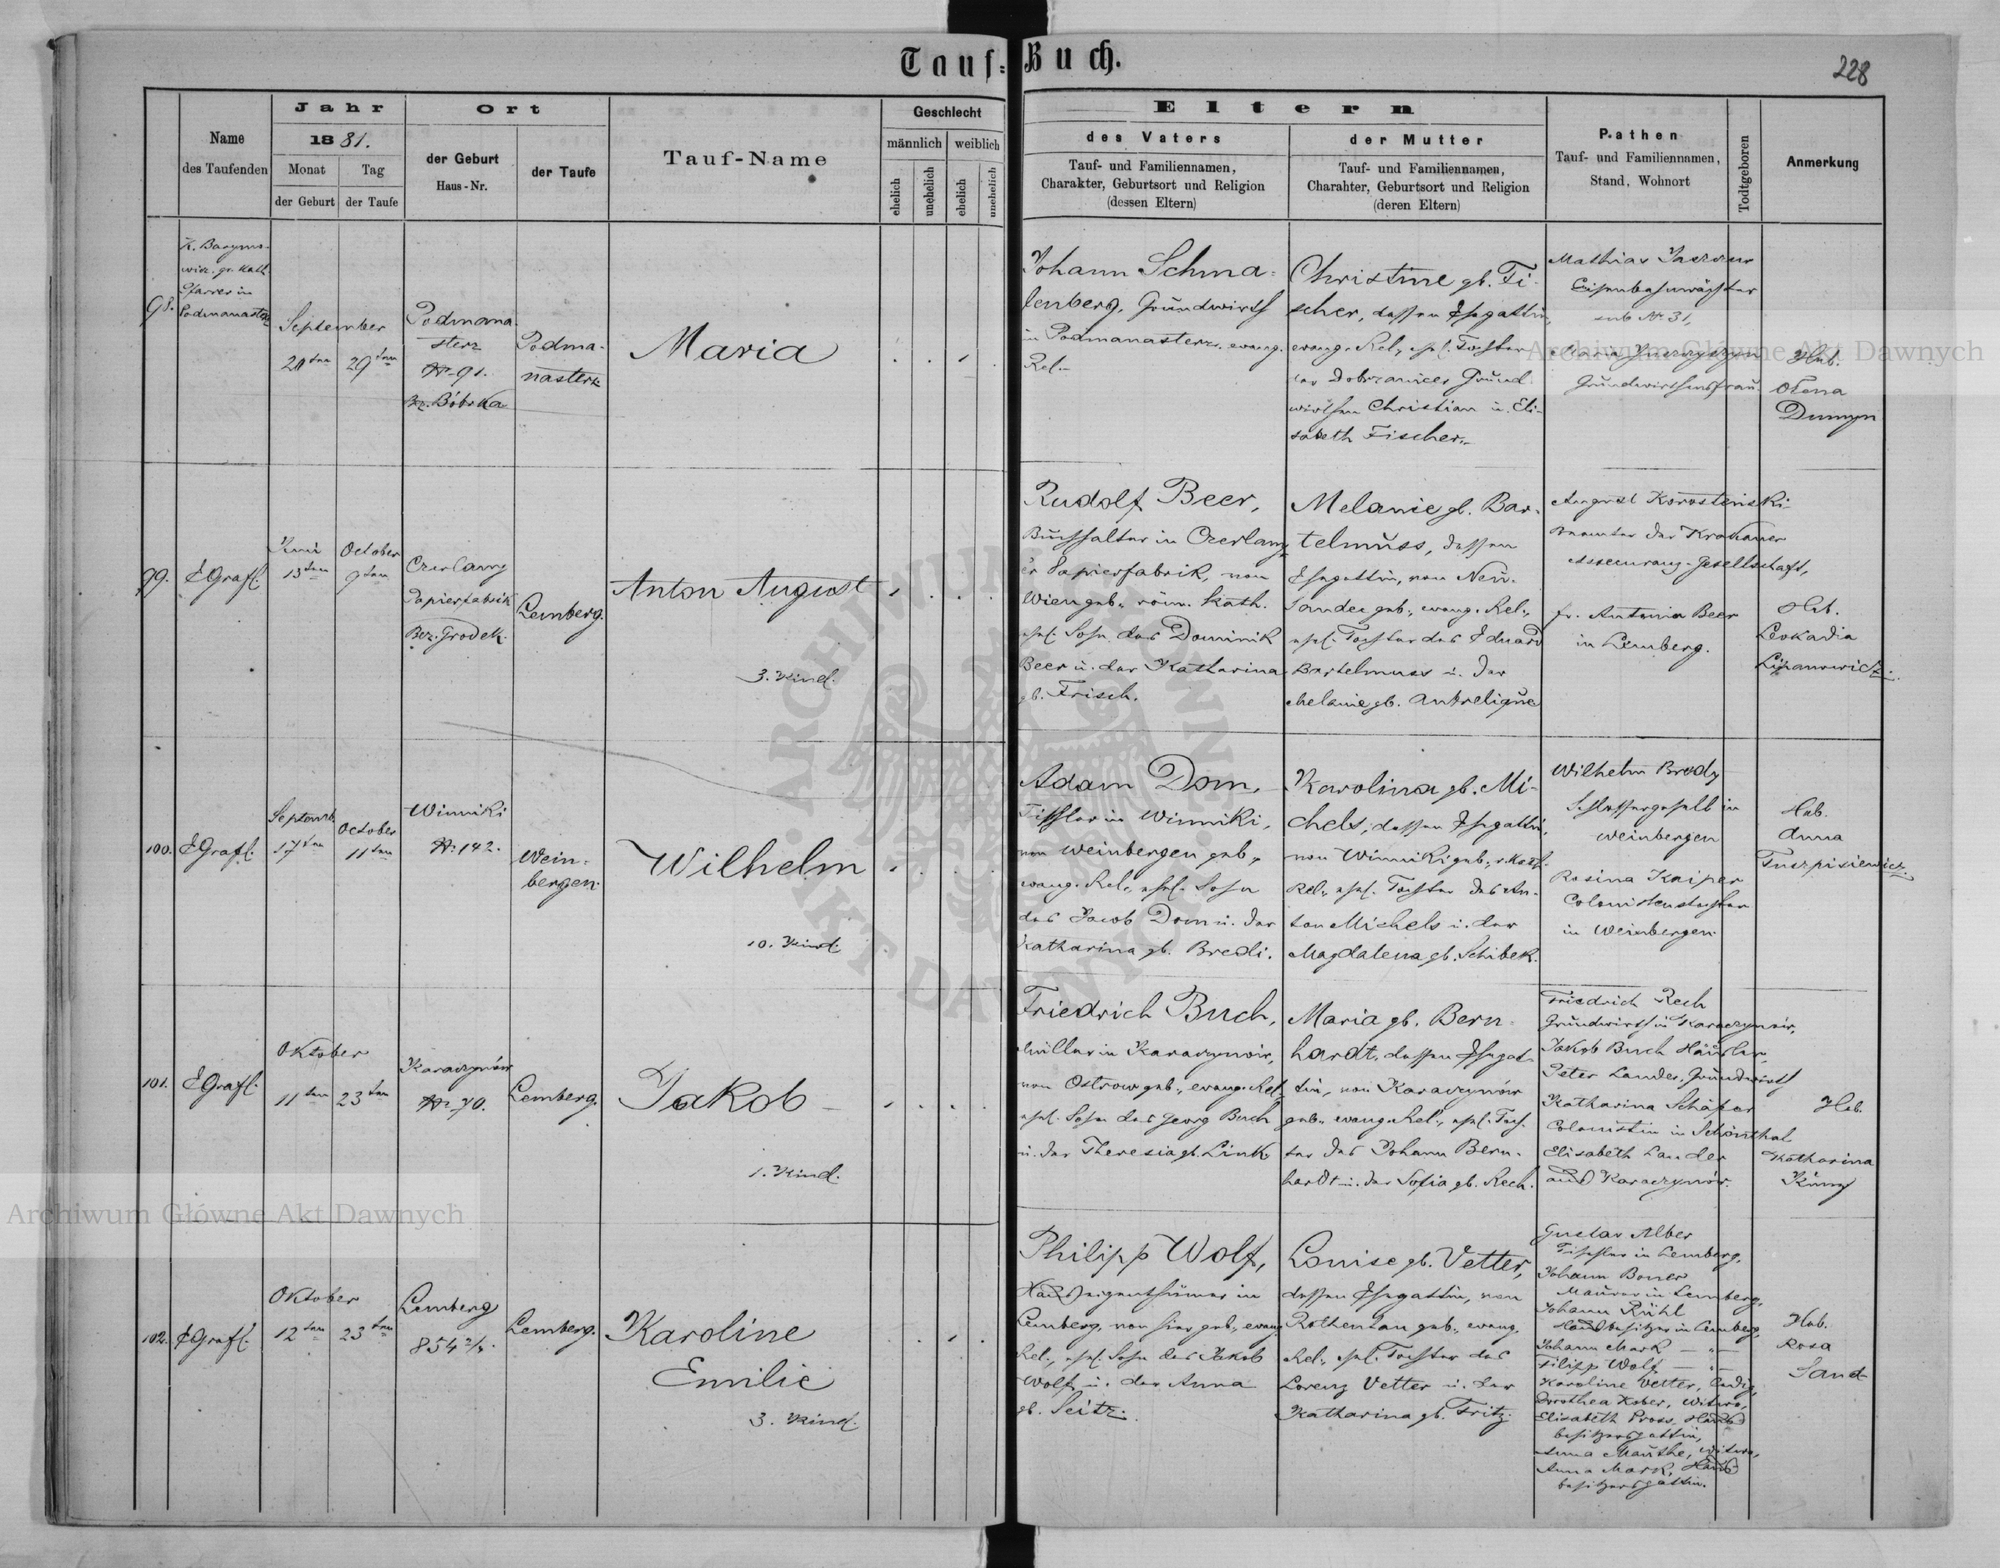 Tauf-Buch.
228
Name
des Taufenden
Jahr
1881.
Monat
Tag
der Geburt
der Taufe
Ort
der Geburt
Haus-Nr.
der Taufe
Tauf-Name
Geschlecht
männlich
weiblich
ehelich
unehelich
ehelich
unehelich
Eltern
des Vaters
Tauf- und Familiennamen,
Charakter, Geburtsort und Religion
(dessen Eltern)
der Mutter
Tauf- und Familiennamen,
Charakter, Geburtsort und Religion
(deren Eltern)
Pathen
Tauf- und Familiennamen,
Stand, Wohnort
Todtgeboren
Anmerkung
98.
wicz. gr. Kath.
Pfarrer in
Podmanaster
September
29ten
Podmana-
sterz
Nr. 91.
Bez. Bóbrka
Podma-
nasterz
Maria
Johann Schma-
lenberg, Grundwirth
in Podmanasterz, evang.
Rel.
Christine gb. Fi-
scher, dessen Ehegattin,
evang. Rel., ehel. Tochter
der Dobrzanicer Grund-
wirthen Christian u. Eli-
sabeth Fischer.
Mathias
Eisenbahnwächter
sub Nr. 31,
Maria
Grundwirthensfrau.
Heb.
Olena
99.
E Graf.
Juni
13ten
October
9ten
Czerlany
Papierfabrik
Bez. Grodek.
Lemberg.
Anton August
3. Kind.
Rudolf Beer,
Buchhalter in Czerlany-
er Papierfabrik, von
Wien geb., röm. Kath.
ehel. Sohn des Dominik
Beer u. der Katharina
gb. Frisch.
Melanie gb. Bar-
telmuss, dessen
Ehegattin, von Neu-
Sandec geb., evang. Rel.,
ehel. Tochter des Eduard
Bartelmuss u. der
Melanie gb.
August Korostenski
Beamter der Krakauer
Assecuranz-Gesellschaft,
Fr. Antonia Beer
in Lemberg.
Heb.
Leokadia
100.
E Graf.
Septemb.
17ten
October
11ten
Winniki
Nr. 142.
Wein-
bergen.
Wilhelm
10. Kind.
Adam Dom,
Tischler in Winniki,
von Weinbergen geb.,
evang. Rel., ehel. Sohn
des Jacob Dom u. der
Katharina gb. Bredi.
Karolina gb. Mi-
chels, dessen Ehegattin,
von Winniki geb., r. kath.
Rel., ehel. Tochter des An-
ton Michels u. der
Magdalena gb. Schibek.
Wilhelm Brody
Schlossergesell in
Weinbergen
Rosina Kaiper
Colonistenstochter
in Weinbergen.
Heb.
Anna
101.
E Graf.
Oktober
11ten
23ten
Karaczynów
Nr. 70.
Lemberg.
Jakob
1. Kind.
Friedrich Buch,
Müller in Karaczynów,
von Ostrow geb., evang. Rel.,
ehel. Sohn des Georg Buch
u. der Theresia gb. Link
Maria gb. Bern-
hardt, dessen Ehegat-
tin, von Karaczynów
geb., evang. Rel., ehel. Toch-
ter des Johann Bern-
hardt u. der Sofia gb. Rech.
Friedrich Rech
Grundwirth in Karaczynów,
Jakob Buch Häusler,
Peter Lander, Grundwirth
Katharina Schäfer
Colonistin in Schönthal
Elisabeth Lander
aus Karaczynów.
Heb.
Katharina
102.
E Graf.
Oktober
12ten
23ten
Lemberg
854 2/4.
Lemberg.
Karoline
Emilie
3. Kind.
Philipp Wolf,
Hauseigenthümer in
Lemberg, von hier geb., evang.
Rel., ehel. Sohn des Jakob
Wolf u. der Anna
gb. Seitz.
Louise gb. Vetter,
dessen Ehegattin, von
Rothenhan geb., evang.
Rel., ehel. Tochter des
Lorenz Vetter u. der
Katharina gb. Fritz.
Gustav Alber
Tischler in Lemberg,
Johann Boner
Maurer in Lemberg,
Johann Rühl
Hausbesitzer in Lemberg,
Johann Mark — „ —
Filipp Wolf — „ —
Karoline Vetter, ledig,
Dorothea Kober, Witwe,
Elisabeth Pross, Haus-
besitzersgattin,
Anna Mauthe, Witwe,
Anna Mark, Haus-
besitzersgattin.
Heb.
Rosa
Sand
Archiwum Główne Akt Dawnych
Archiwum Główne Akt Dawnych
ARCHIWUM GŁÓWNE AKT DAWNYCH